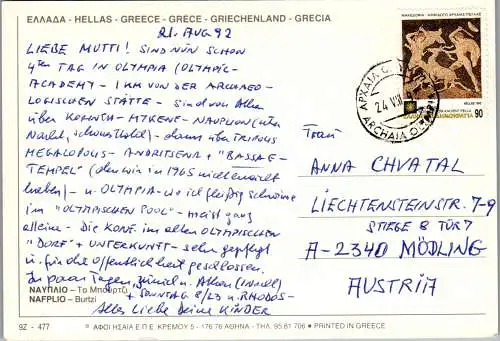 ΕΛΛΑΔΑ - HELLAS - GREECE - GRECE - GRIECHENLAND - GRECIA
21. AUG 92
LIEBE MUTTI! SIND NUN SCHON
4ten TAG IN OLYMPIA (OLYMPIC-
ACADEMY - 1 KM VON DER ARCHAEO-
LOGISCHEN STÄTTE - Sind von Athen
über KORINTH - MYKENE - NAUPLION (eine
Nacht, schönes Hotel) - dann über TRIPOLIS
MEGALOPOLIS - ANDRITSENA + "BASSAE-
TEMPEL" (den wir in 1965 nicht
haben) - n. OLYMPIA - wo ich fleißig schwimme
im "OLYMPISCHEN POOL" - meist ganz
allein - Die KONF. im alten OLYMPISCHEN
"DORF" + UNTERKUNFT - sehr gepflegt
u. für die Öffentlichkeit geschlossen.
In paar Tagen zurück n. Athen
+ SONNTAG 8/23 n. RHODOS -
Alles Liebe Deine KINDER
ΝΑΥΠΛΙΟ - Το Μπούρτζι
NAFPLIO - Burtzi
92 - 477
ΑΦΟΙ ΗΣΑΪΑ Ε.Π.Ε. ΚΡΕΜΟΥ 5 - 176 76 ΑΘΗΝΑ - ΤΗΛ. 95 81 706 ® PRINTED IN GREECE
HELLAS
90
ΑΡΧΑΙΑ Ο
24 VIII
ARCHAIA OL
Frau
ANNA CHVATAL
LIECHTENSTEINSTR. 7-9
STIEGE 8 TÜR 7
A-2340 MÖDLING
AUSTRIA